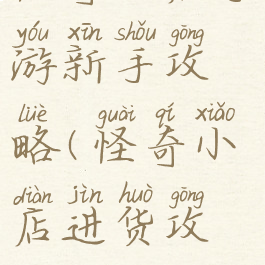 yóu xīn shǒu gōng
游新手攻
lüè guài qí xiǎo
略(怪奇小
diàn jìn huò gōng
店进货攻